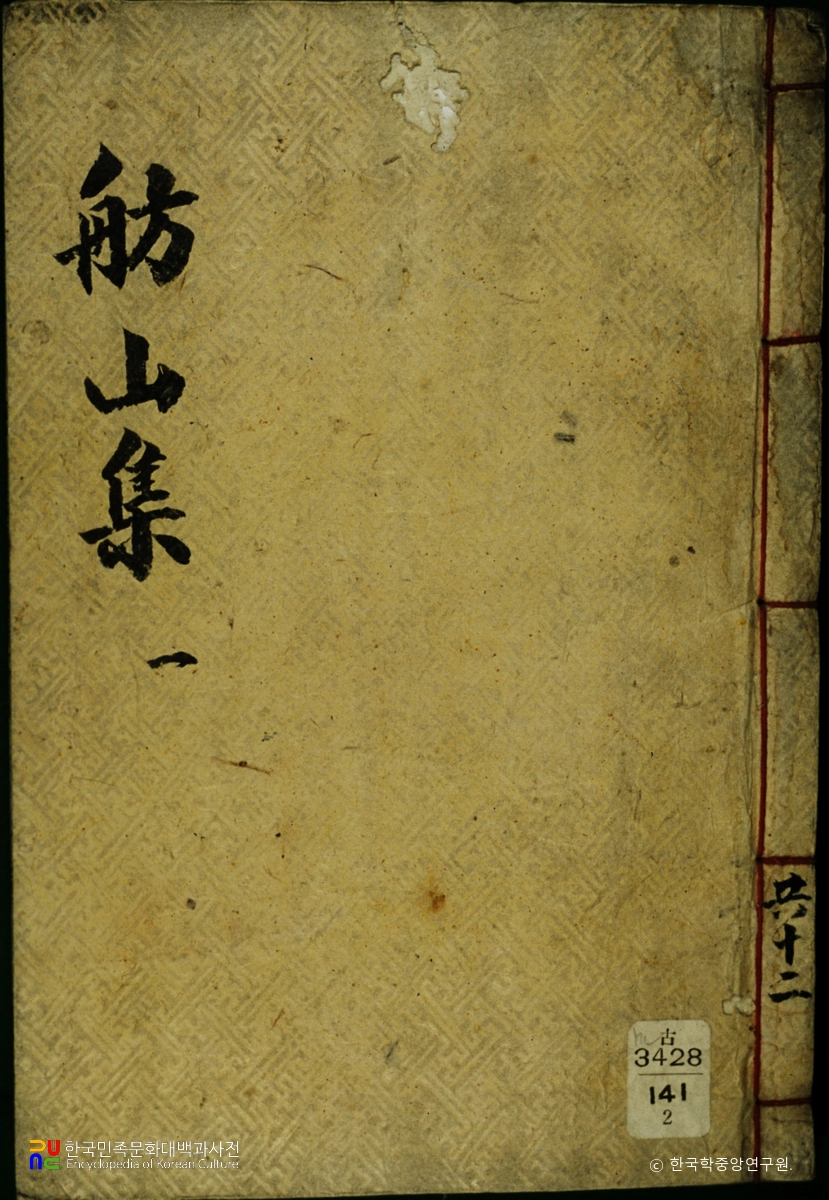 舫山集
一
共十二
古
3428
141
2
한국민족문화대백과사전
Encyclopedia of Korean Culture
© 한국학중앙연구원.